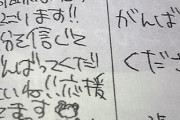 ります!!
分を信じて
んばってくださ
いね!!応援
てます
がんば
くださ